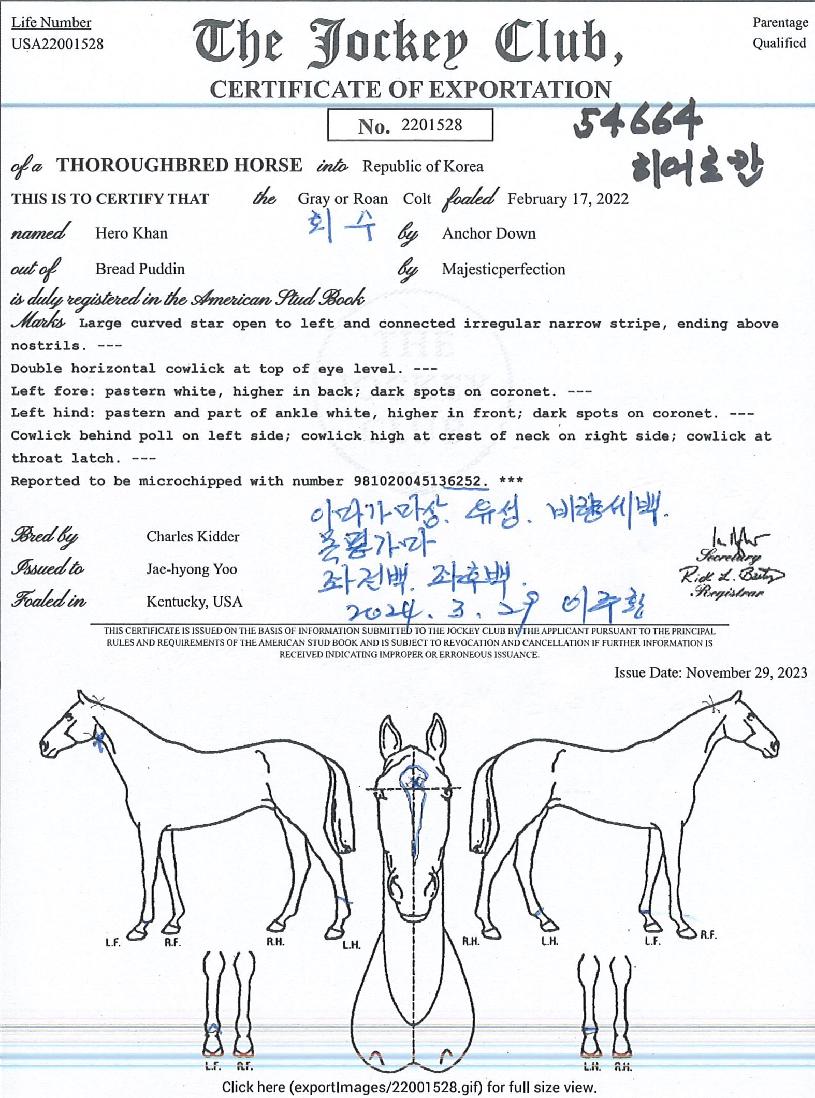 Life Number
USA22001528
The Jockey Club,
Parentage
Qualified
CERTIFICATE OF EXPORTATION
No. 2201528
54664
히어로칸
of a THOROUGHBRED HORSE into Republic of Korea
THIS IS TO CERTIFY THAT the Gray or Roan Colt foaled February 17, 2022
회수
named Hero Khan by Anchor Down
out of Bread Puddin by Majesticperfection
is duly registered in the American Stud Book
Marks Large curved star open to left and connected irregular narrow stripe, ending above
nostrils. ---
Double horizontal cowlick at top of eye level. ---
Left fore: pastern white, higher in back; dark spots on coronet. ---
Left hind: pastern and part of ankle white, higher in front; dark spots on coronet. ---
Cowlick behind poll on left side; cowlick high at crest of neck on right side; cowlick at
throat latch. ---
Reported to be microchipped with number 981020045136252. ***
유성.
Bred by Charles Kidder
Issued to Jae-hyong Yoo
좌전백. 좌후백.
Foaled in Kentucky, USA
2024. 3. 29
Secretary
Registrar
THIS CERTIFICATE IS ISSUED ON THE BASIS OF INFORMATION SUBMITTED TO THE JOCKEY CLUB BY THE APPLICANT PURSUANT TO THE PRINCIPAL
RULES AND REQUIREMENTS OF THE AMERICAN STUD BOOK AND IS SUBJECT TO REVOCATION AND CANCELLATION IF FURTHER INFORMATION IS
RECEIVED INDICATING IMPROPER OR ERRONEOUS ISSUANCE.
Issue Date: November 29, 2023
L.F. R.F. R.H. L.H. R.H. L.H. L.F. R.F.
L.F. R.F. L.H. R.H.
Click here (exportImages/22001528.gif) for full size view.